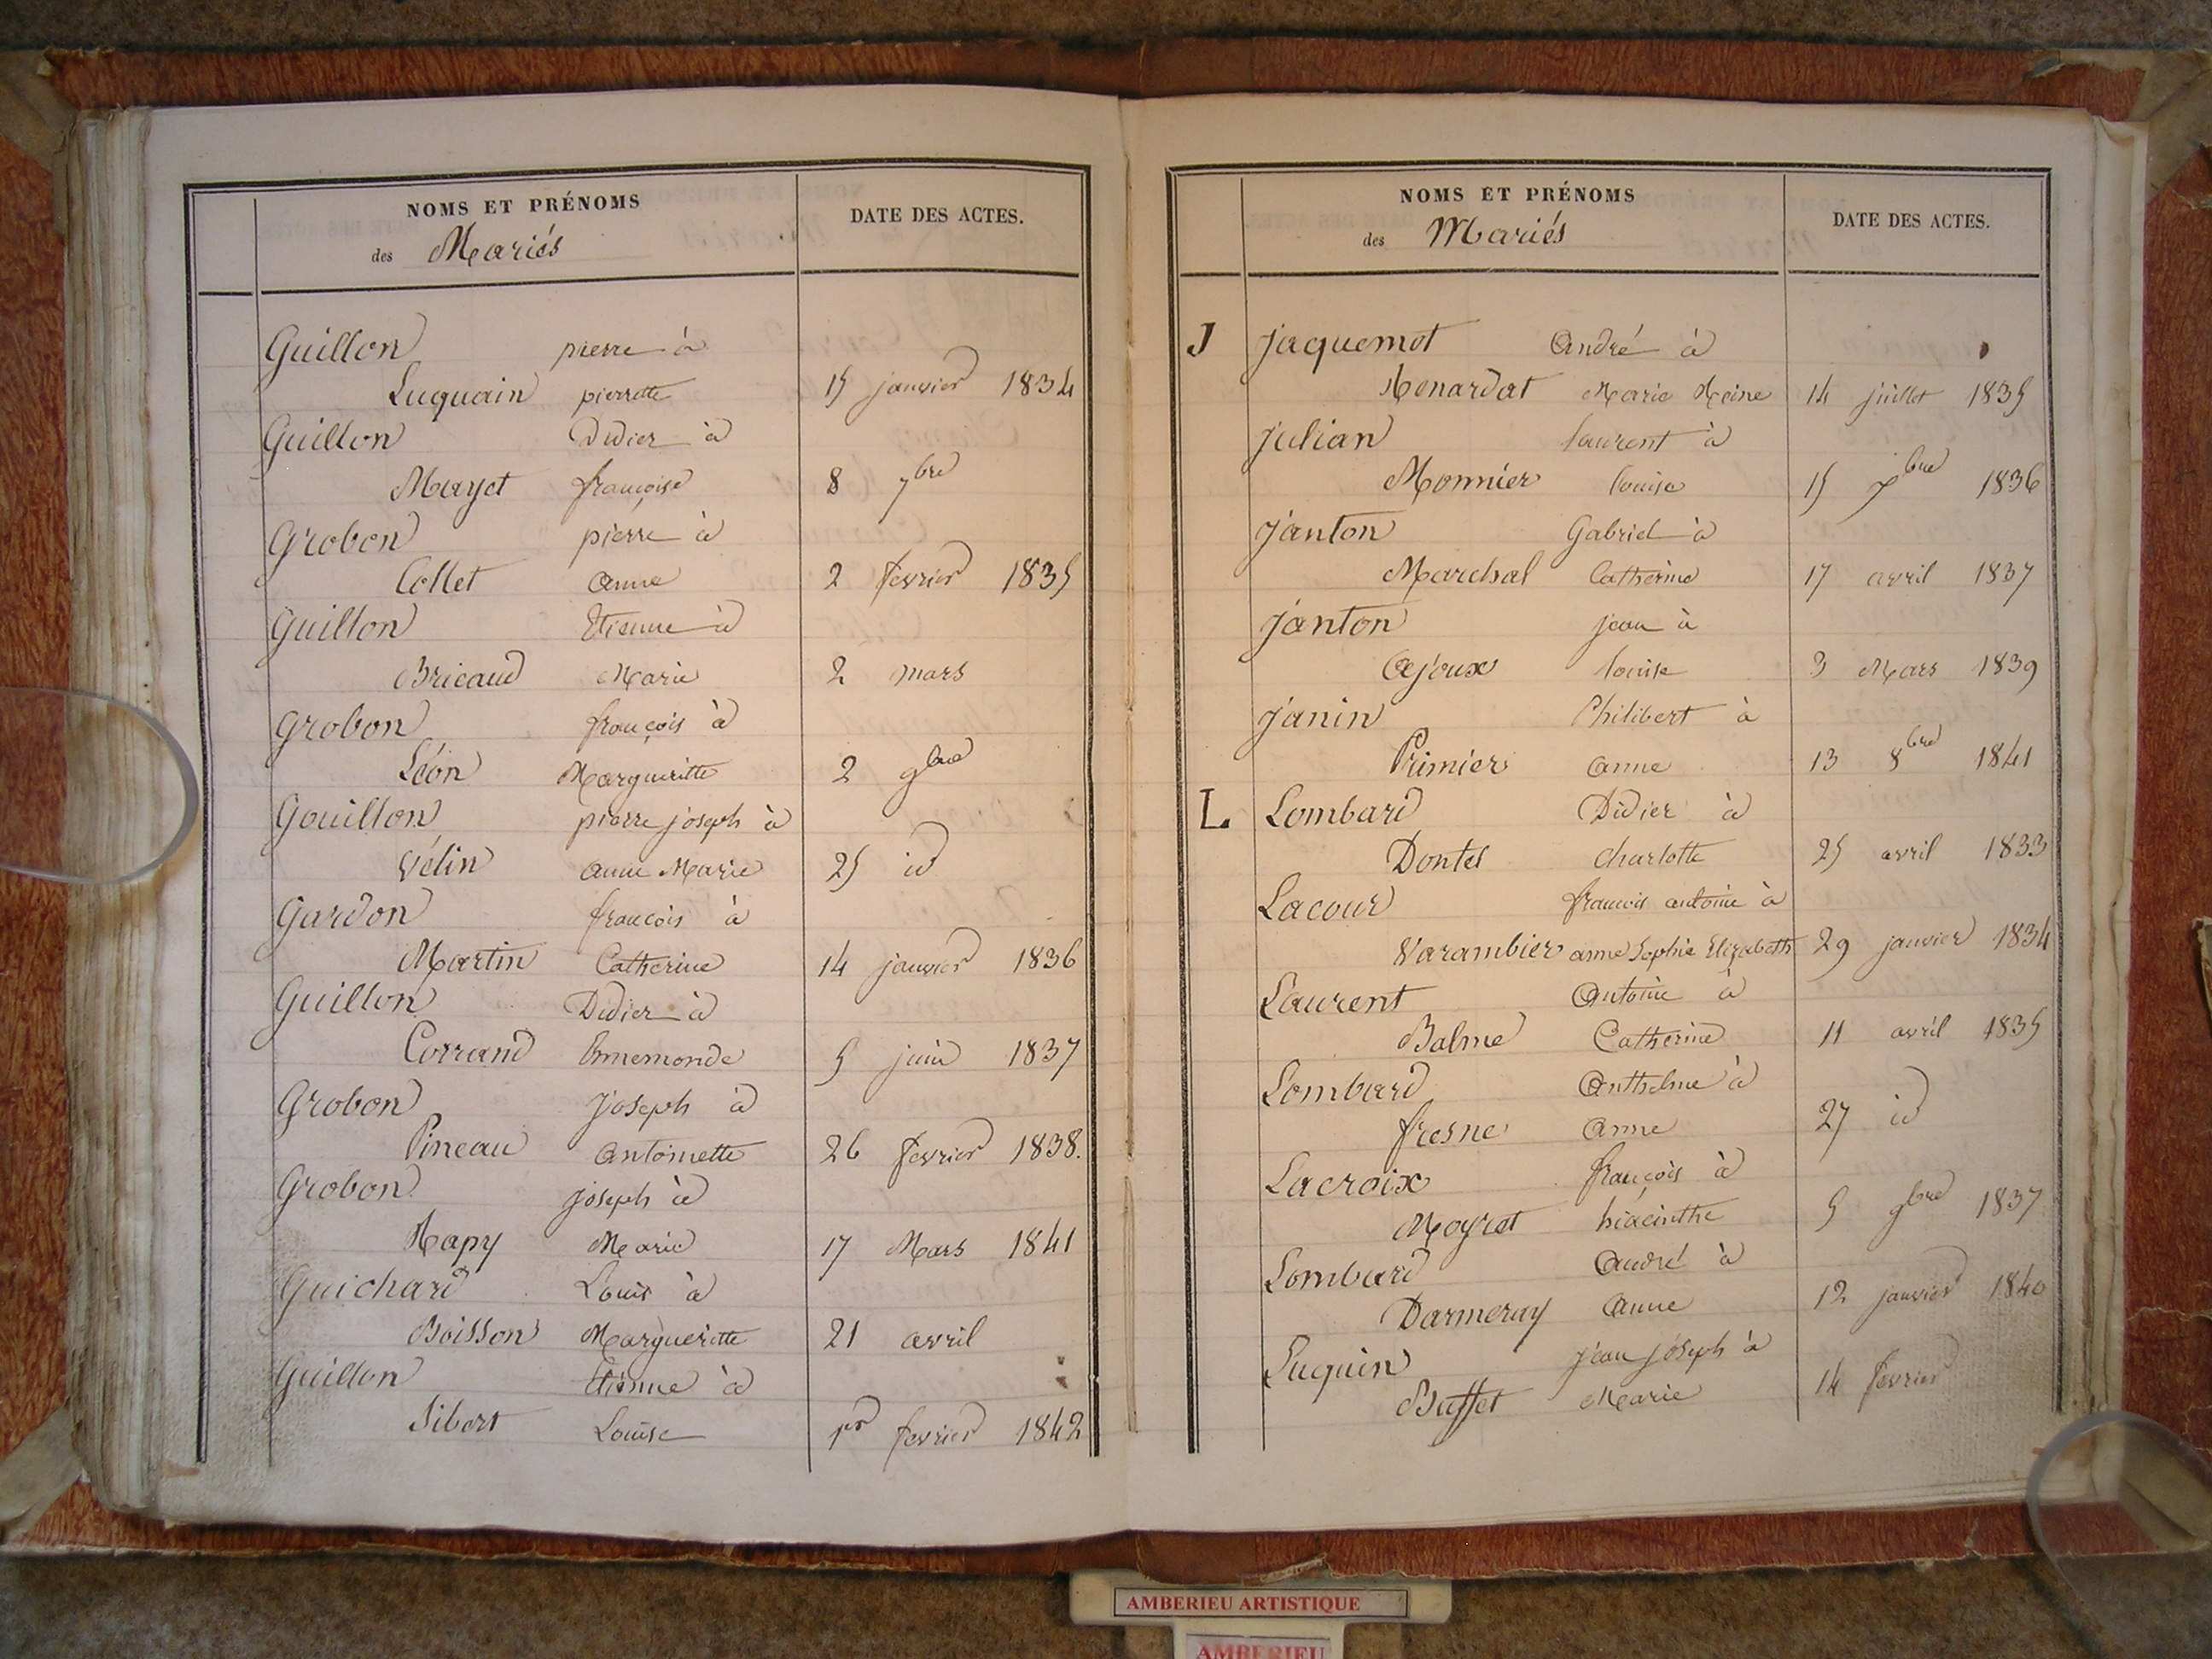 NOMS ET PRÉNOMS
des Mariés
DATE DES ACTES.
Guillon pierre à
Luquain pierrette 15 janvier 1834
Guillon Didier à
Mayet françoise 8 7bre
Grobon pierre à
Collet Anne 2 fevrier 1835
Guillon Etienne à
Bricaud Marie 2 mars
Grobon françois à
Léon Margueritte 2 9bre
Gouillon pierre joseph à
Vélin anne Marie 25 id
Gardon francois à
Martin Catherine 14 janvier 1836
Guillon Didier à
Corrand Ennemonde 5 juin 1837
Grobon Joseph à
Pineau Antoinette 26 fevrier 1838.
Grobon joseph à
Rapy Marie 17 Mars 1841
Guichard Louis à
Boisson Margueritte 21 avril
Guillon Etienne à
Sibert Louise 1er fevrier 1842
NOMS ET PRÉNOMS
des Mariés
DATE DES ACTES.
J Jaquemot André à
Renardat Marie Reine 14 juillet 1835
Julian laurent à
Monnier louise 15 7bre 1836
Janton Gabriel à
Marchal Catherine 17 avril 1837
Janton jean à
Ajoux louise 3 Mars 1839
Janin Philibert à
Primier anne 13 8bre 1841
L Lombard Didier à
Dontel charlotte 25 avril 1833
Lacour francois antoine à
Varambier anne Sophie Elizabeth 29 janvier 1834
Laurent Antoine à
Balme Catherine 11 avril 1835
Lombard Anthelme à
fresne anne 27 id
Lacroix françois à
Moyret hiacinthe 5 9bre 1837
Lombard André à
Darmeray Anne 12 janvier 1840
Luquin jean joseph à
Buffet Marie 14 fevrier
AMBERIEU ARTISTIQUE
AMBERIEU